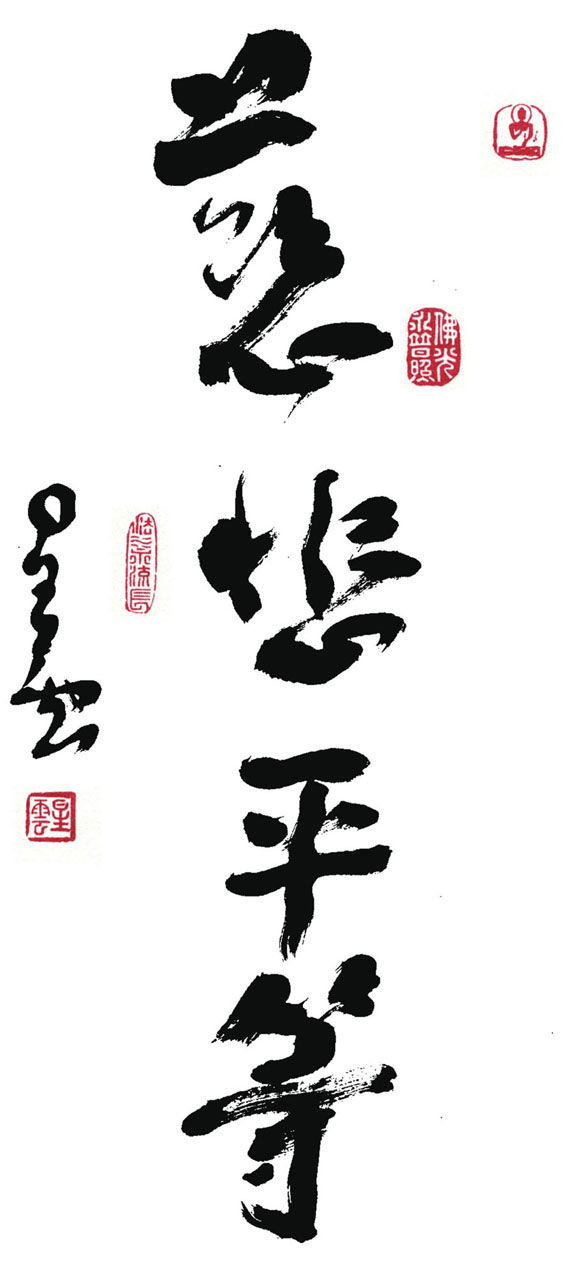 佛光
永普照
慈悲平等
法水永流長
星雲
星雲